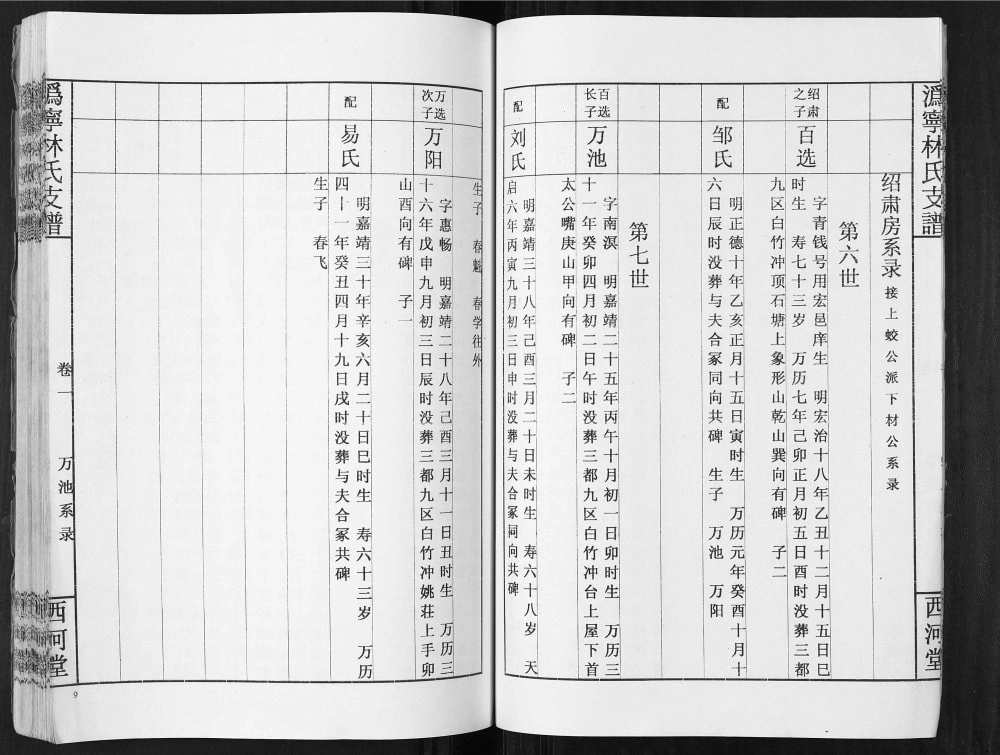 溈寧林氏支譜
西河堂
绍肃房系录 接上蛟公派下材公系录
第六世
绍肃之子
百选
字青钱号用宏邑庠生 明宏治十八年乙丑十二月十五日巳
时生 寿七十三岁 万历七年己卯正月初五日酉时没葬三都
九区白竹冲顶石塘上象形山乾山巽向有碑 子二
配
邹氏
明正德十年乙亥正月十五日寅时生 万历元年癸酉十月十
六日辰时没葬与夫合冢同向共碑 生子 万池 万阳
第七世
百选长子
万池
字南溟 明嘉靖二十五年丙午十月初一日卯时生 万历三
十一年癸卯四月初二日午时没葬三都九区白竹冲台上屋下首
太公嘴庚山甲向有碑 子二
配
刘氏
明嘉靖三十八年己酉三月二十日未时生 寿六十八岁 天
启六年丙寅九月初三日申时没葬与夫合冢同向共碑
生子 春魁 春学往外
万选次子
万阳
字惠畅 明嘉靖二十八年己酉三月十一日丑时生 万历三
十六年戊申九月初三日辰时没葬三都九区白竹冲姚荘上手卯
山酉向有碑 子一
配
易氏
明嘉靖三十年辛亥六月二十日巳时生 寿六十三岁 万历
四十一年癸丑四月十九日戌时没葬与夫合冢共碑
生子 春飞
溈寧林氏支譜
卷一
万池系录
西河堂
9